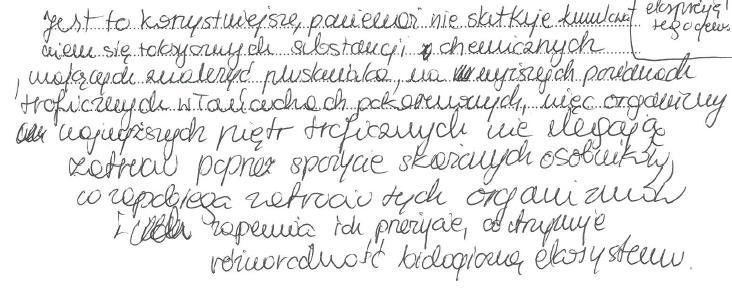 jest to korzystniejsze, ponieważ nie skutkuje kumulowa-
niem się toksycznych substancji chemicznych
mających zwalczyć pluskwiaka, na wyższych poziomach
troficznych w łańcuchach pokarmowych, więc organizmy
najwyższych pięter troficznych nie ulegają
zatruciu poprzez spożycie skażonych osobników,
co zapobiega zatruciu tych organizmów
i zapewnia ich przeżycie, a utrzymuje
różnorodność biologiczną ekosystemu.
ekspresję
tego genu